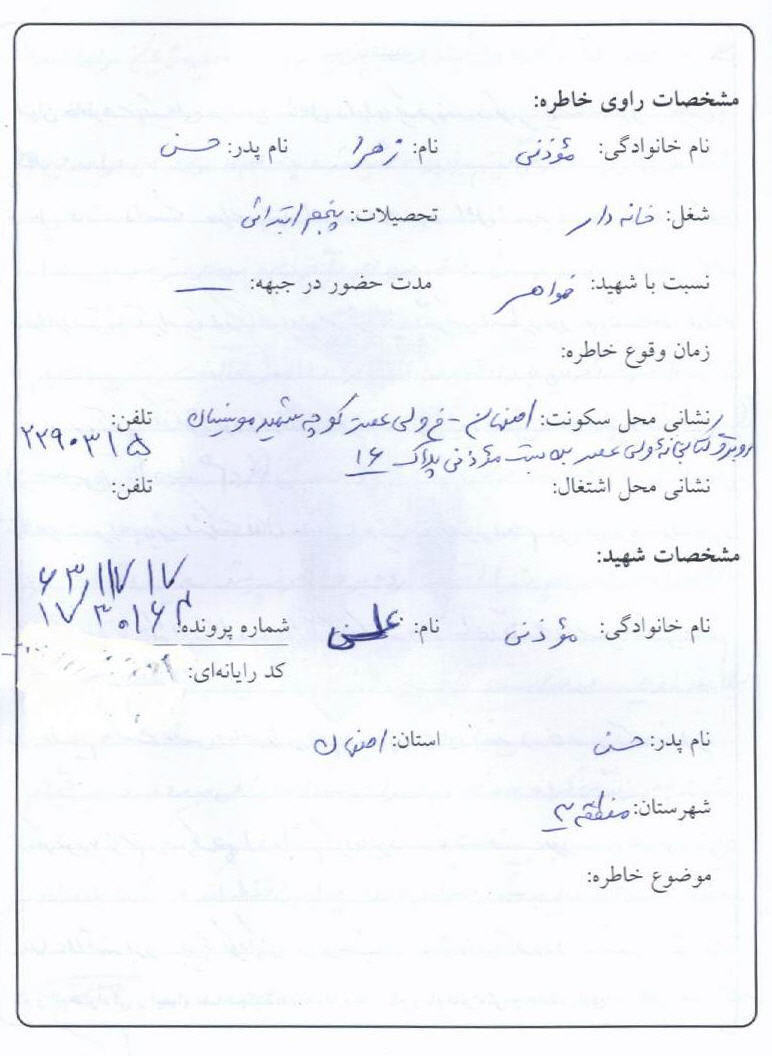 مشخصات راوی خاطره:
نام خانوادگی: مؤذنی نام: زهرا نام پدر: حسن
شغل: خانه دار تحصیلات: پنجم ابتدائی
نسبت با شهید: خواهر مدت حضور در جبهه: —
زمان وقوع خاطره:
نشانی محل سکونت: اصفهان - خ ولی عصر کوچه شهید تلفن:
روبروی کتابخانه ولی عصر بن بست مؤذنی پلاک ۱۶ ۲۲۹۰۳۱۵
نشانی محل اشتغال: تلفن:
مشخصات شهید:
نام خانوادگی: مؤذنی نام: علی شماره پرونده:
کد رایانه‌ای:
نام پدر: حسن استان: اصفهان
شهرستان: منطقه ۳
موضوع خاطره: